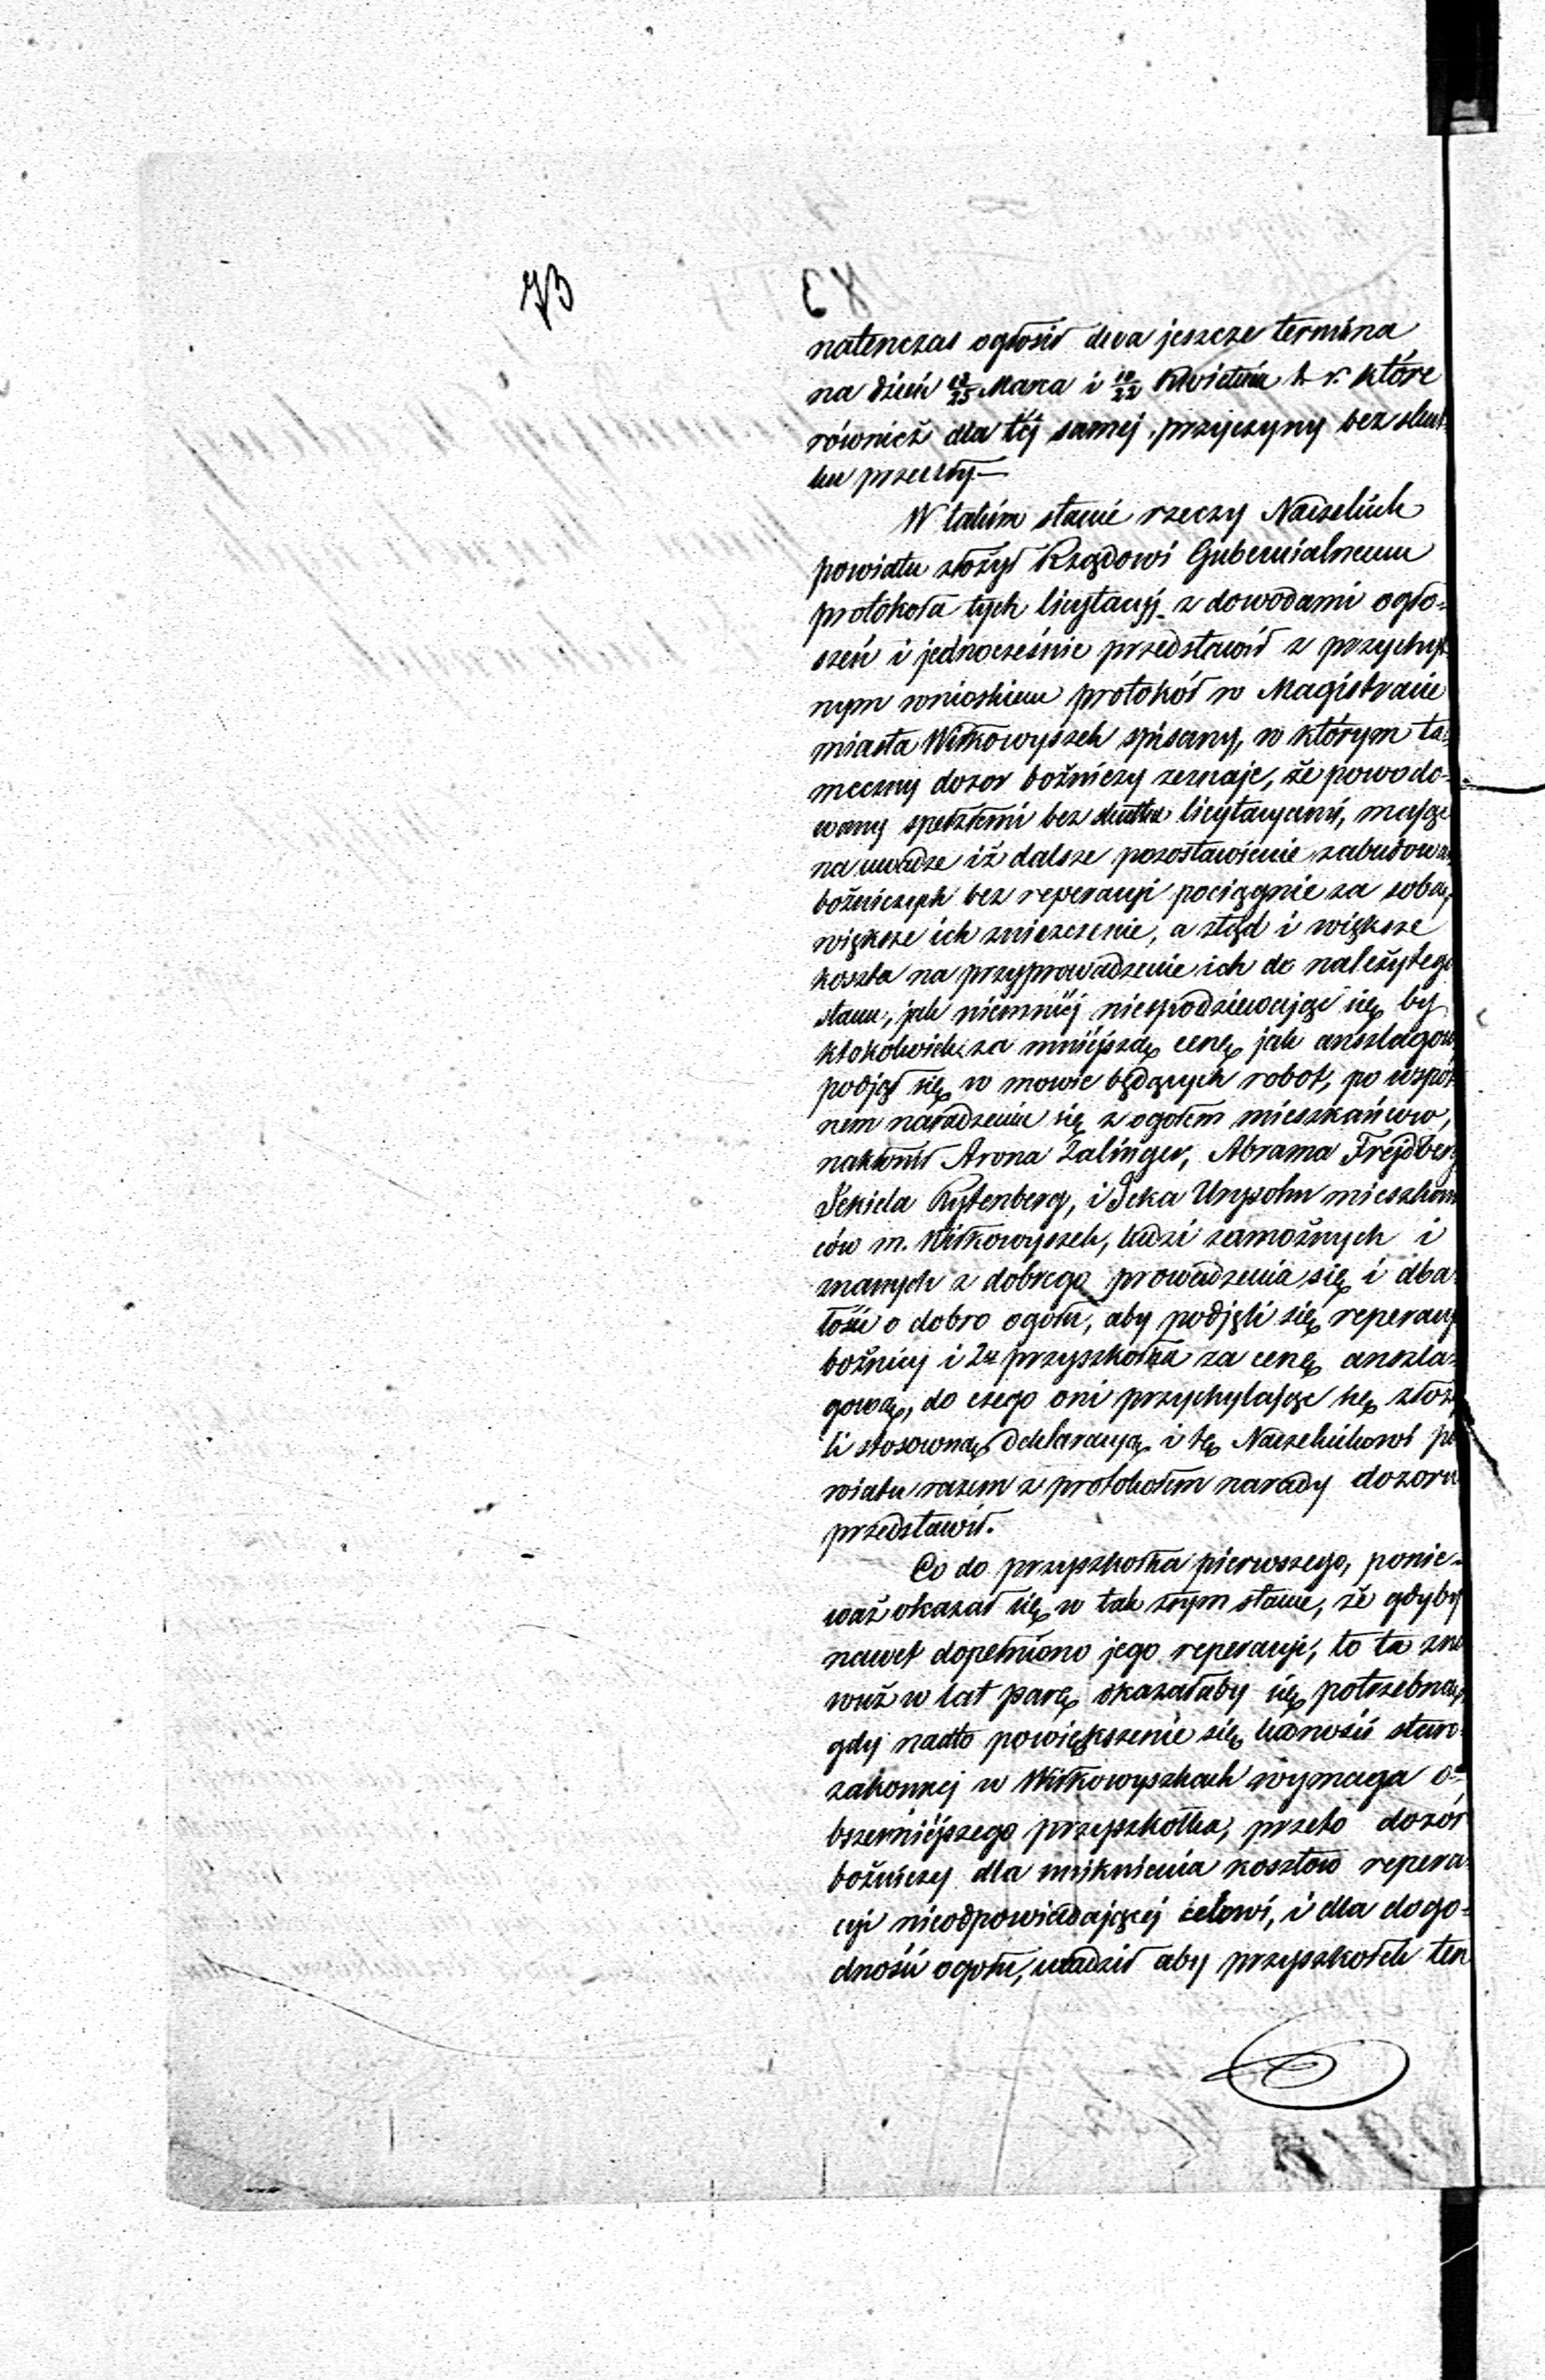 73
natenczas ogłosił dwa jeszcze termina
na dzień 13/25 Marca i 10/22 Kwietnia b. r. które
również dla téj samej przyczyny bez skut-
ku przeszły —
W takim stanie rzeczy Naczelnik
powiatu złożył Rządowi Gubernialnemu
protokoła tych licytacyj z dowodami ogło-
szeń i jednocześnie przedstawił z przychyl-
nym wnioskiem protokół w Magistracie
miasta Wiłkowyszek spisany, w którym ta-
meczny dozor bożniczy zeznaje, że powodo-
wany spełzłemi bez skutku licytacyami, mając
na uwadze iż dalsze pozostawienie zabudowań
bożniczych bez reperacyi pociągnie za sobą
większe ich zniszczenie, a ztąd i większe
koszta na przyprowadzenie ich do należytego
stanu, jak niemniéj niespodziewając się by
ktokolwiek za mniejszą cenę jak anszlagową
podjął się w mowie będących robot, po wspól-
nem naradzeniu się z ogołem mieszkańców,
nakłonił Arona Zalinger, Abrama Frejdberg
Jekiela Rytenberg, i Icka Urysohn mieszkań-
ców m. Wiłkowyszek, ludzi zamożnych i
znanych z dobrego prowadzenia się i dba-
łości o dobro ogołu, aby podjęli się reperacyi
bożnicy i 2o przyszkołka za cenę anszla-
gową, do czego oni przychylając się złoży-
li stosowną deklaracyą i tę Naczelnikowi po-
wiatu razem z protokołem narady dozoru
przedstawił.
Co do przyszkołka pierwszego, ponie-
waż okazał się w tak złym stanie, że gdyby
nawet dopełniono jego reperacyi, to ta zno-
wuż w lat parę okazałaby się potrzebną,
gdy nadto powiększenie się ludności staro-
zakonnej w Wiłkowyszkach wymaga o-
bszerniéjszego przyszkołka, przeto dozór
bożniczy dla uniknienia kosztow repera-
cyi nieodpowiadającéj celowi, i dla dogo-
dności ogołu, uradził aby przyszkołek ten